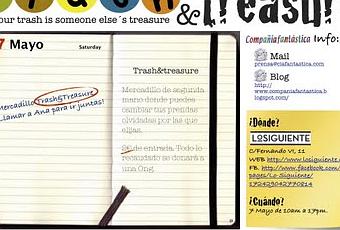 & trash!
our trash is someone else´s treasure
7 Mayo
Saturday
Mercadillo Trash&Treasure
Llamar a Ana para ir juntas!
Trash&treasure
Mercadillo de segunda
mano donde puedes
cambiar tus prendas
olvidadas por las que
elijas.
2€ de entrada. Todo lo
recaudado se donará a
una Ong.
Compañíafantástica Info:
Mail
prensa@ciafantastica.com
Blog
http://
www.companiafantastica.b
logspot.com/
¿Dónde?
LOSIGUIENTE
C/Fernando VI, 11
WEB http://www.losiguiente.
FB. http://www.facebook.com/
pages/Lo-Siguiente/
172429042770814
¿Cuándo?
7 Mayo de 10am a 17pm.